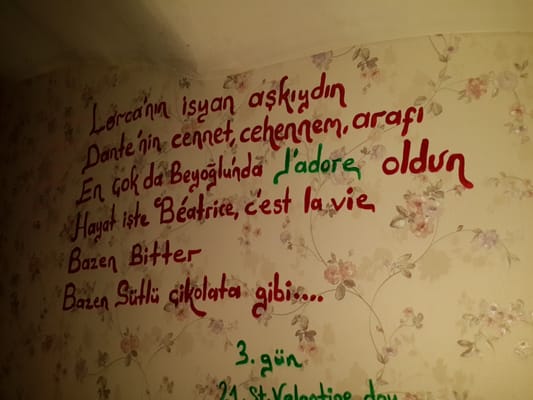 Lorca'nın isyan aşkıydın
Dante'nin cennet, cehennem, arafı
En çok da Beyoğlu'nda J'adore oldun
Hayat işte Béatrice, c'est la vie
Bazen Bitter
Bazen Sütlü çikolata gibi....
3. gün
21. St. Valentine day